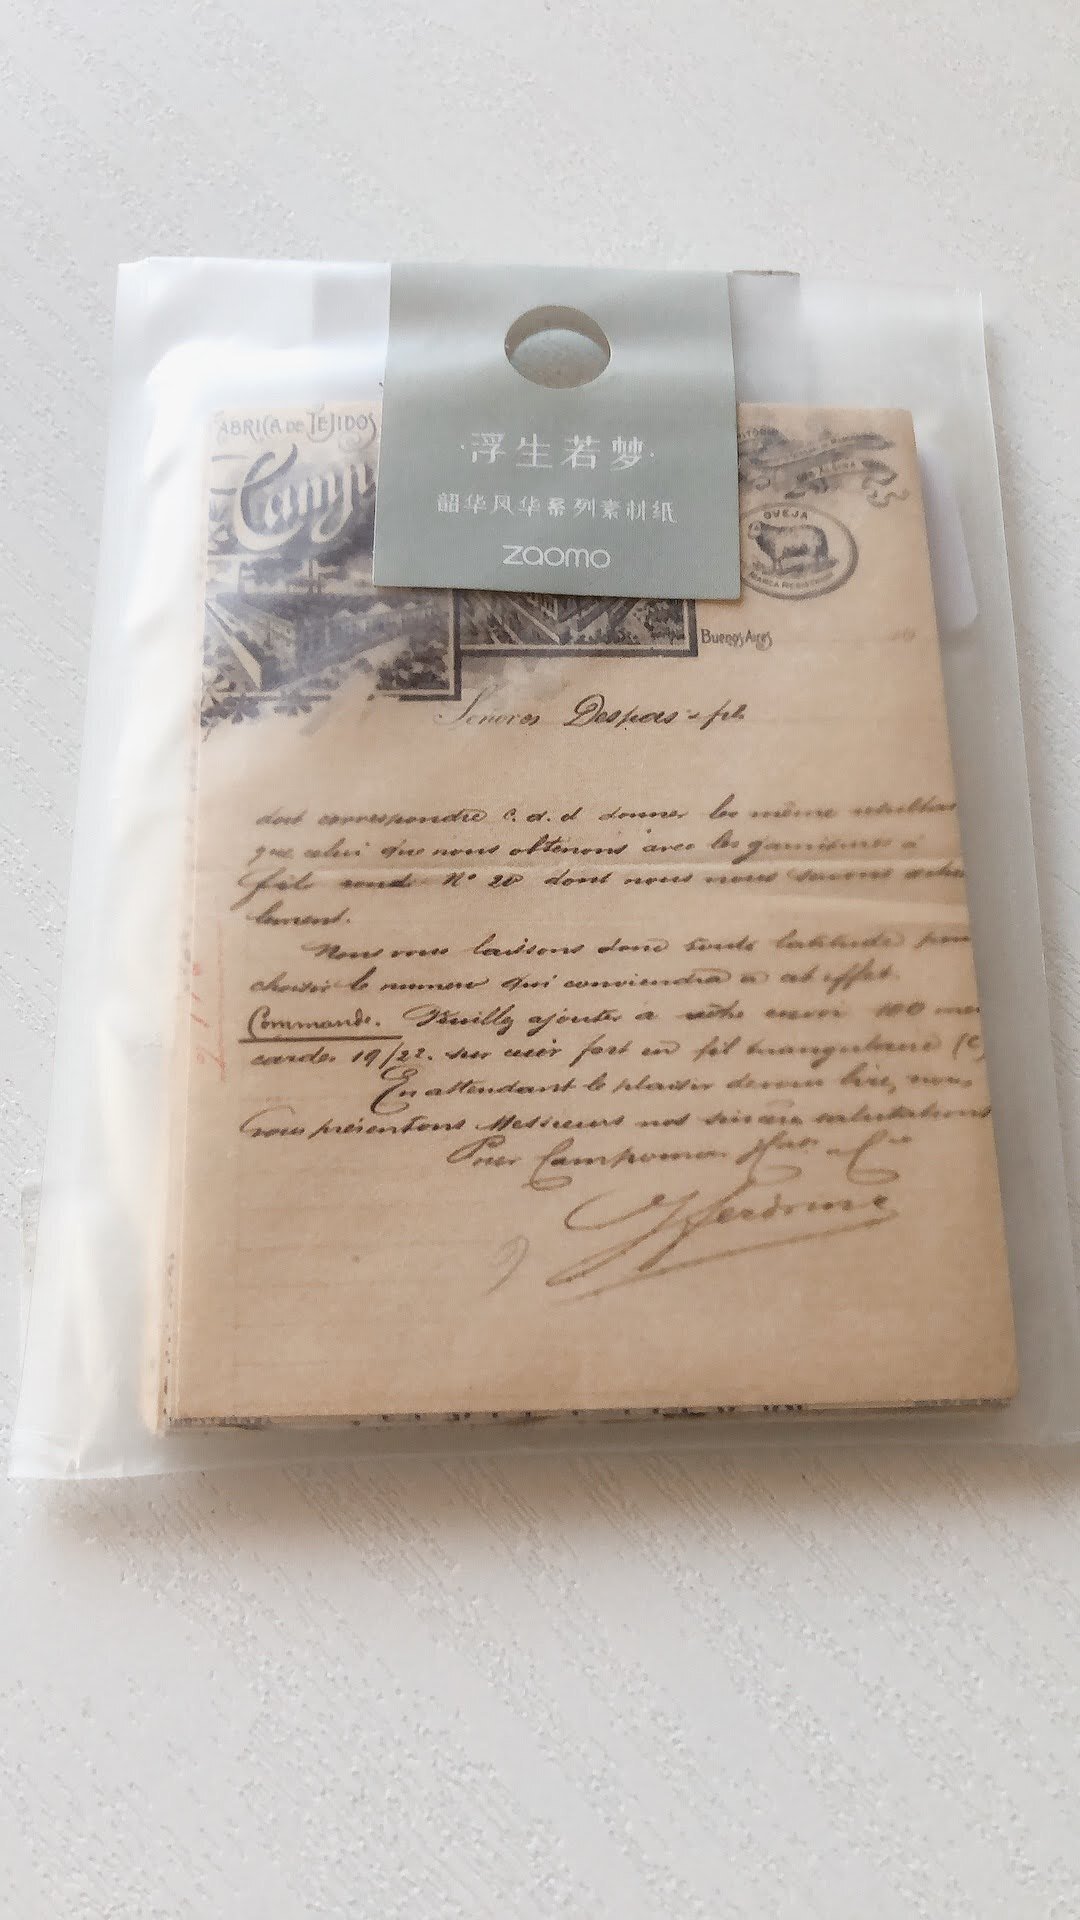 FABRICA DE TEJIDOS
·浮生若梦·
韶华风华系列素材纸
zaomo
OVEJA
MARCA REGISTRADA
Buenos Aires
Señores Despas & fils
doit correspondre c. a. d donner les même résultats
que celui que nous obtenons avec les garnitures à
fil rond N° 20 dont nous nous servons actuel
lement.
Nous vous laissons donc toute latitude pour
choisir le numero qui conviendra a cet effet.
Commande. Veuillez ajouter a votre envoi 100
cardes 19/22. sur cuir fort en fil triangulaire (C)
En attendant le plaisir de vous lire, nous
vous présentons Messieurs nos sincères salutations